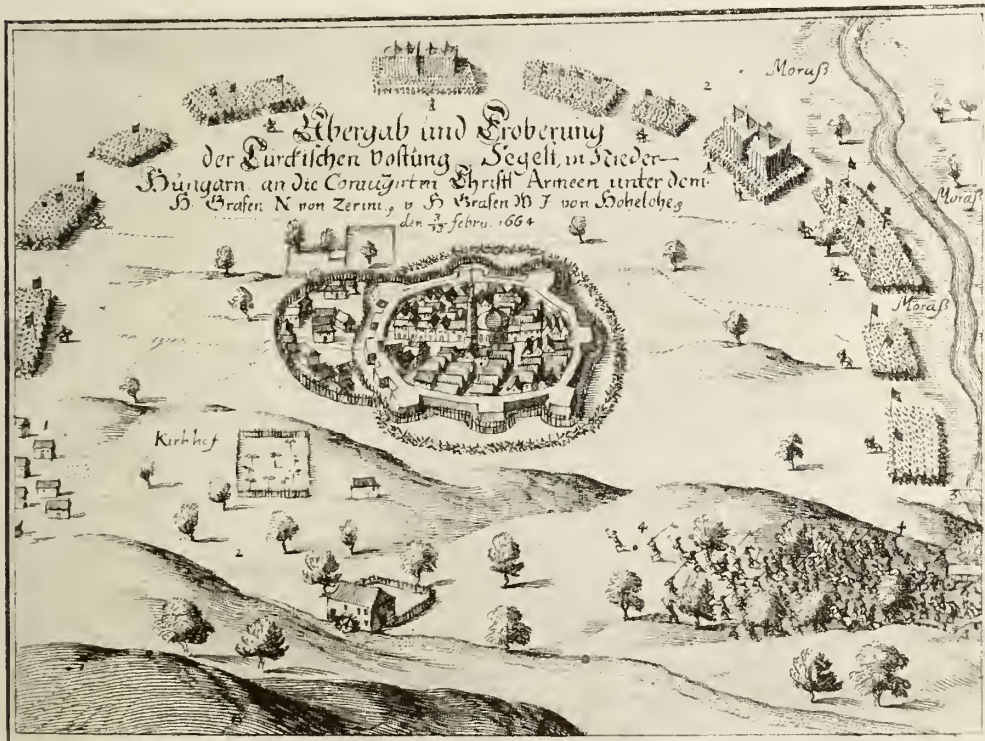 Übergab und Eroberung
der Türckischen Vostung Segest, in Nieder-
Hungarn. an die Christl Armeen unter dem
H. Grafen N von Zerini, v H Grafen W J von Hohelohe,
den 3/13 febru. 1664
Moraß
2
Moraß
Moraß
Kirhhof
1
2
3
4
4